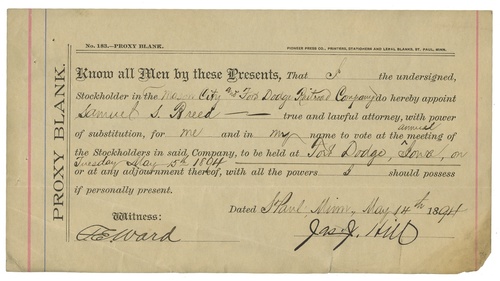 No. 183.—PROXY BLANK. PIONEER PRESS CO., PRINTERS, STATIONERS AND LEGAL BLANKS, ST. PAUL, MINN.
PROXY BLANK.
Know all Men by these Presents, That I the undersigned,
Stockholder in the Mason City and Fort Dodge Railroad Company do hereby appoint
Samuel S. Breed true and lawful attorney, with power
of substitution, for me and in my name to vote at the annual meeting of
the Stockholders in said Company, to be held at Fort Dodge, Iowa, on
Tuesday May 5th 1894
or at any adjournment thereof, with all the powers I should possess
if personally present.
Dated St Paul, Minn, May 14th 1894
Witness:
Ward Jas. J. Hill